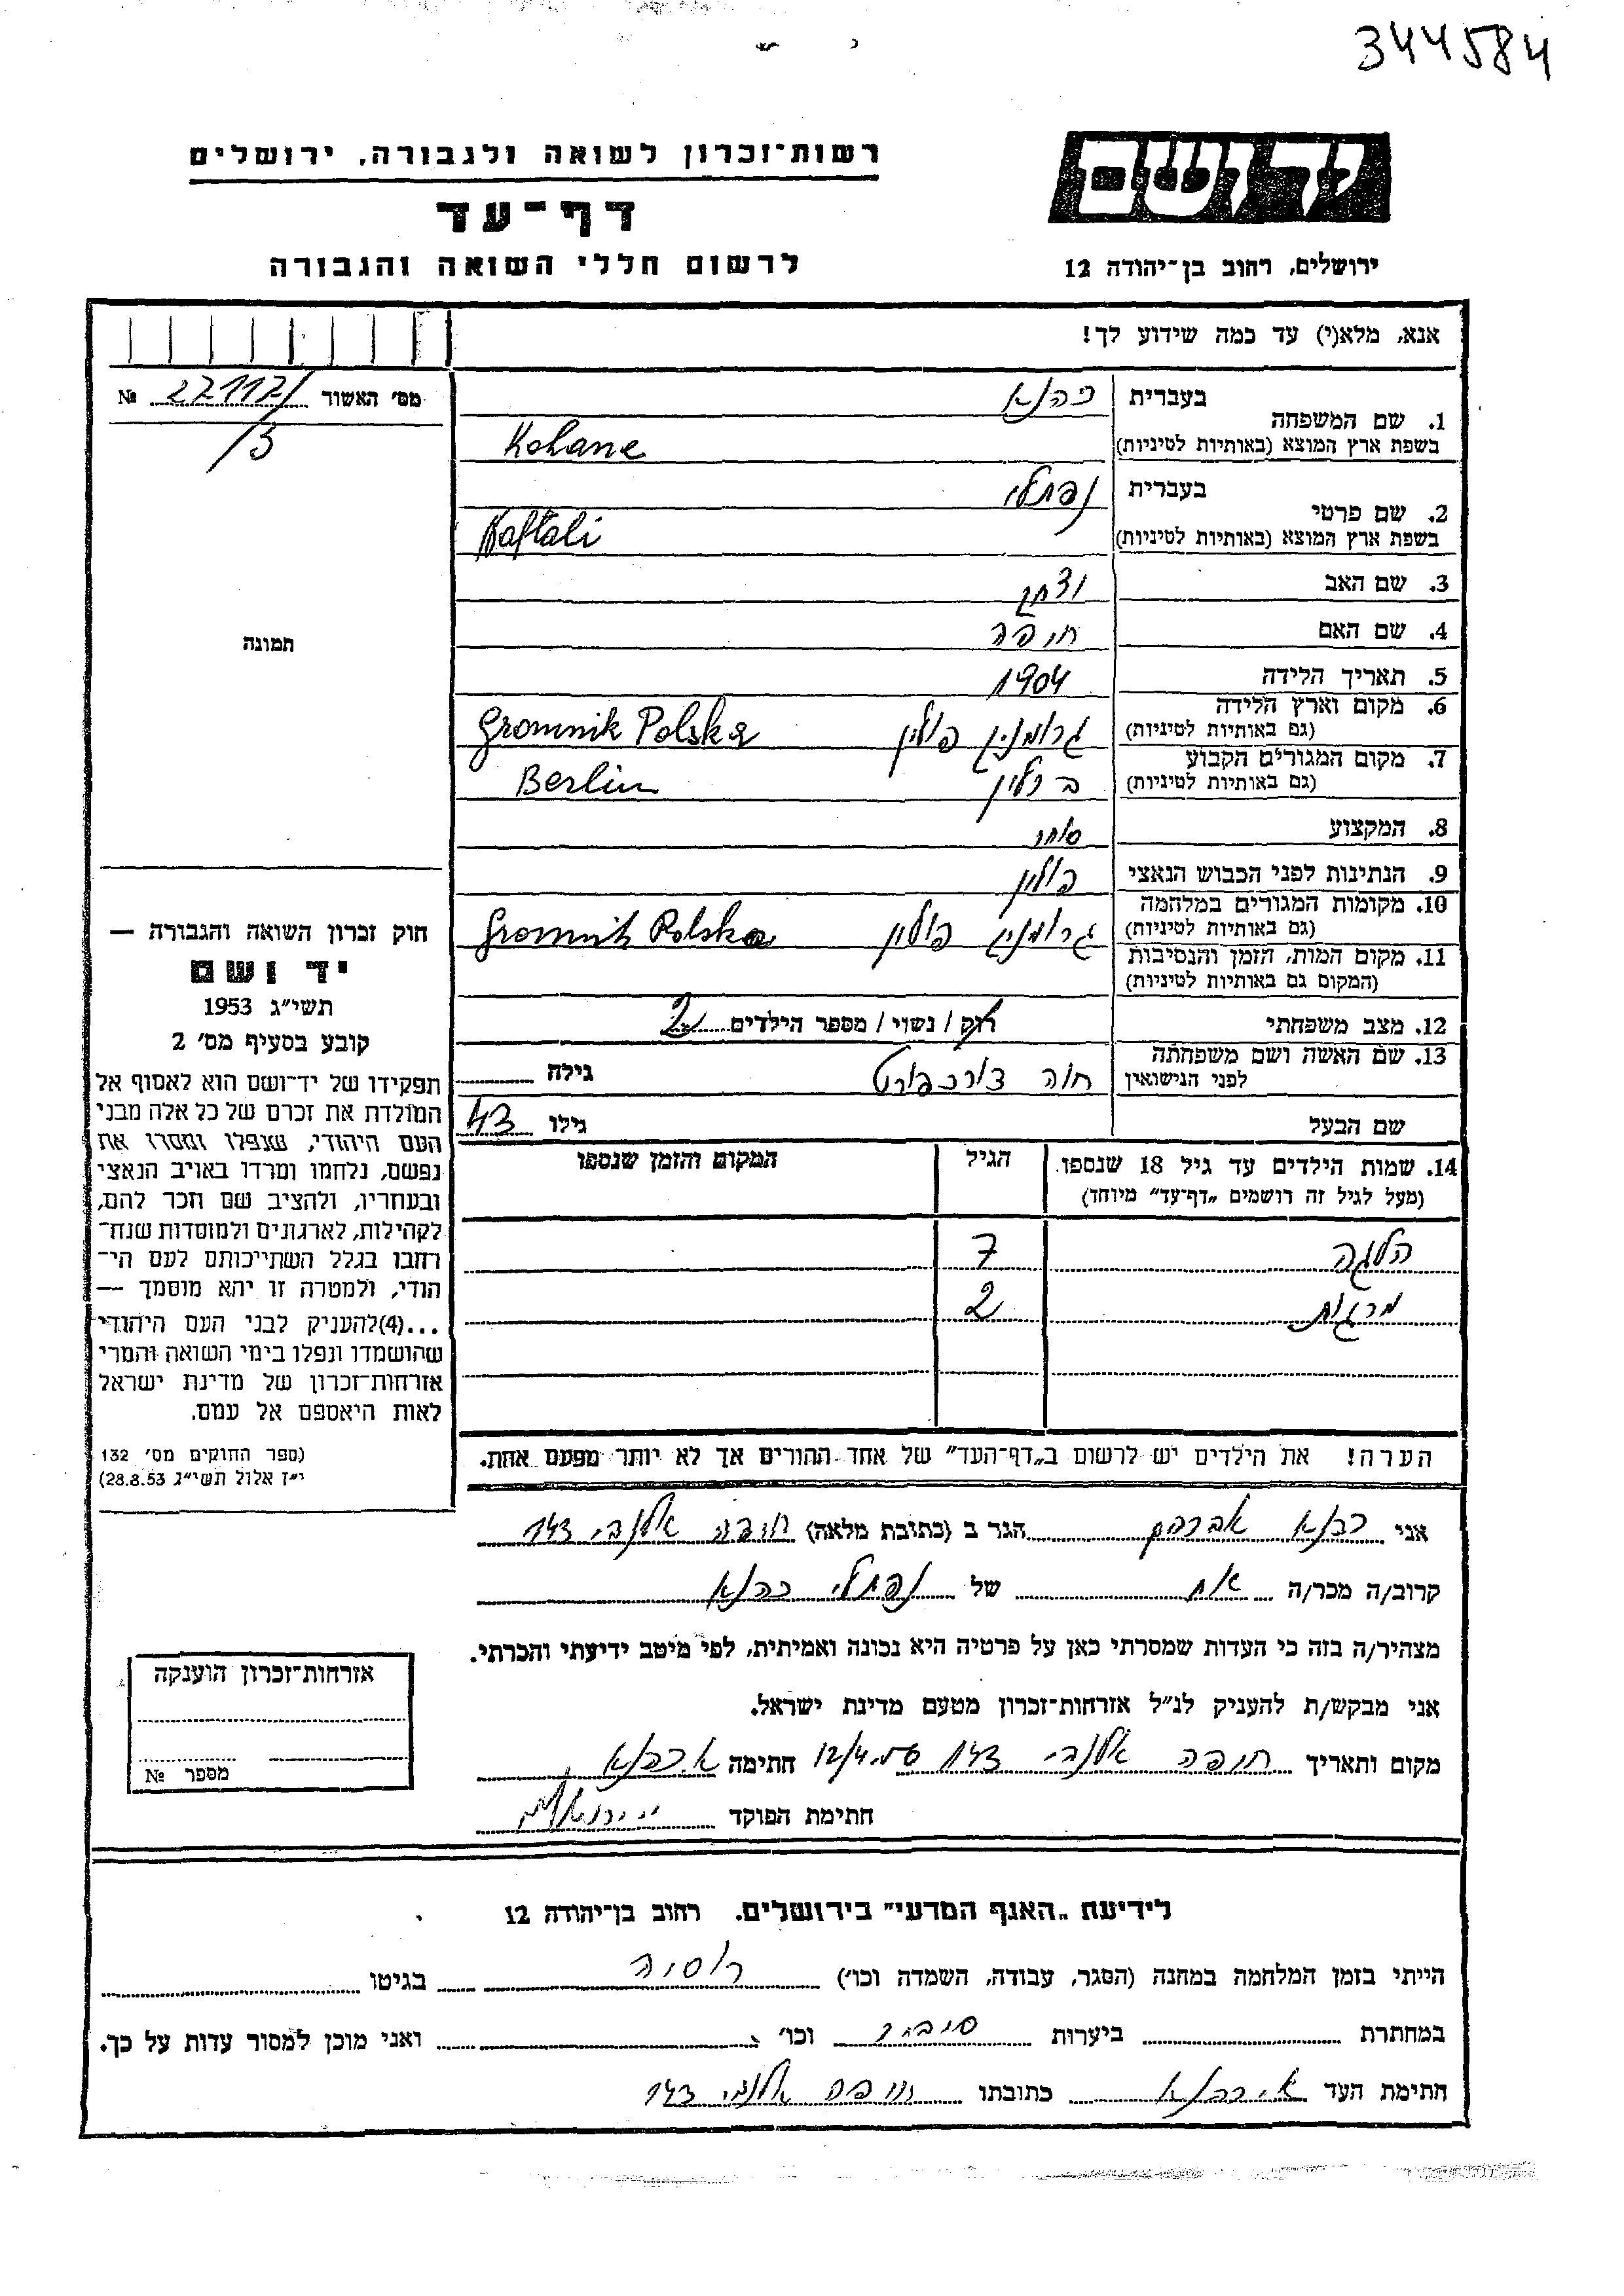 344584
רשות־זכרון לשואה ולגבורה, ירושלים
דף־עד
לרשום חללי השואה והגבורה
יד ושם
ירושלים, רחוב בן־יהודה 12
אנא, מלא(י) עד כמה שידוע לך!
מס׳ האשור № 22117/
/3
תמונה
1. שם המשפחה בעברית כהנא
בשפת ארץ המוצא (באותיות לטיניות) Kohane
2. שם פרטי בעברית נפתלי
בשפת ארץ המוצא (באותיות לטיניות) Naftali
3. שם האב
4. שם האם
5. תאריך הלידה 1904
6. מקום וארץ הלידה
(גם באותיות לטיניות) גרומניק פולין Gromnik Polska
7. מקום המגורים הקבוע
(גם באותיות לטיניות) ברלין Berlin
8. המקצוע סוחר
9. הנתינות לפני הכבוש הנאצי פולין
10. מקומות המגורים במלחמה
(גם באותיות לטיניות) גרומניק פולין Gromnik Polska
11. מקום המות, הזמן והנסיבות
(המקום גם באותיות לטיניות)
12. מצב משפחתי רוק / נשוי / מספר הילדים 2
13. שם האשה ושם משפחתה
לפני הנישואין חוה גילה
שם הבעל גילו 43
14. שמות הילדים עד גיל 18 שנספו הגיל המקום והזמן שנספו
(מעל לגיל זה רושמים „דף־עד” מיוחד)
הלגה 7
מרגות 2
הערה! את הילדים יש לרשום ב„דף־העד” של אחד ההורים אך לא יותר מפעם אחת.
חוק זכרון השואה והגבורה —
יד ושם
תשי״ג 1953
קובע בסעיף מס׳ 2
תפקידו של יד־ושם הוא לאסוף אל
המולדת את זכרם של כל אלה מבני
העם היהודי, שנפלו ומסרו את
נפשם, נלחמו ומרדו באויב הנאצי
ובעוזריו, ולהציב שם וזכר להם,
לקהילות, לארגונים ולמוסדות שנח־
רבו בגלל השתייכותם לעם הי־
הודי, ולמטרה זו יהא מוסמך —
...(4)להעניק לבני העם היהודי
שהושמדו ונפלו בימי השואה והמרי
אזרחות־זכרון של מדינת ישראל
לאות היאספם אל עמם.
(ספר החוקים מס׳ 132
י״ז אלול תשי״ג 28.8.53)
אני כהנא אברהם הגר ב (כתובת מלאה) חיפה אלנבי 143
קרוב/ה מכר/ה אח של נפתלי כהנא
מצהיר/ה בזה כי העדות שמסרתי כאן על פרטיה היא נכונה ואמיתית, לפי מיטב ידיעתי והכרתי.
אני מבקש/ת להעניק לנ״ל אזרחות־זכרון מטעם מדינת ישראל.
מקום ותאריך חיפה אלנבי 143 12/4.56 חתימה א. כהנא
חתימת הפוקד
אזרחות־זכרון הוענקה
מספר №
לידיעת „האגף המדעי” בירושלים. רחוב בן־יהודה 12
הייתי בזמן המלחמה במחנה (הסגר, עבודה, השמדה וכו׳) רוסיה בגיטו
במחתרת ביערות סיביר וכו׳ ואני מוכן למסור עדות על כך.
חתימת העד א. כהנא כתובתו חיפה אלנבי 143